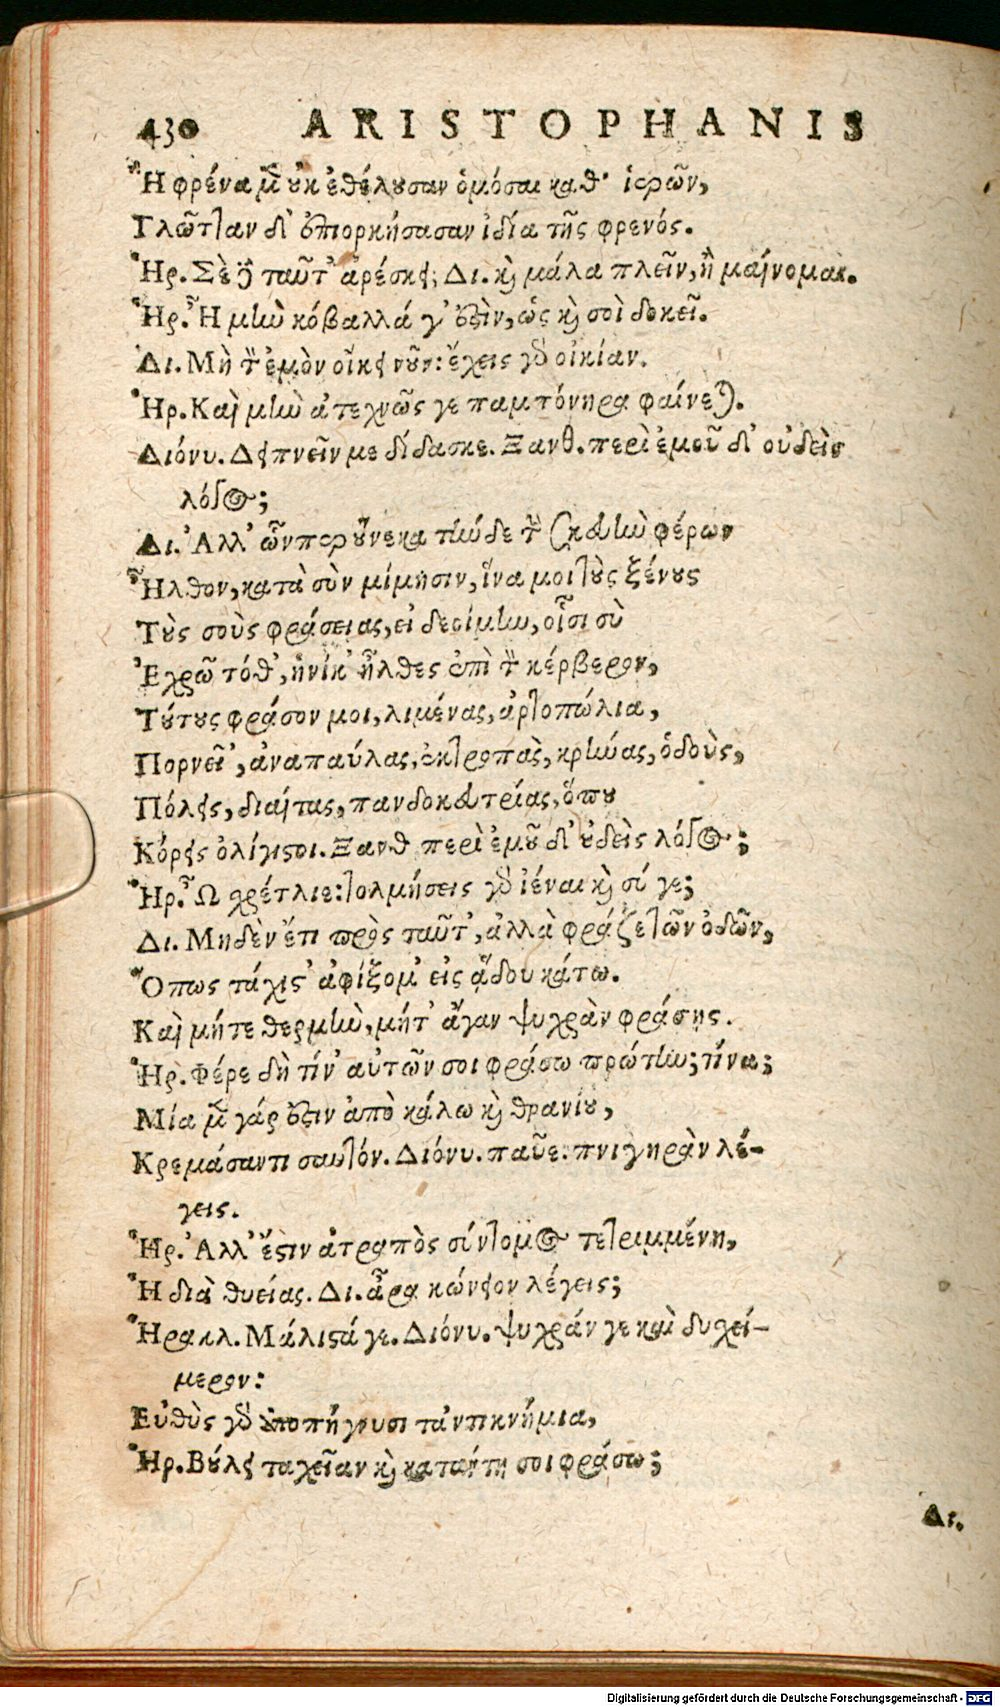 430 ARISTOPHANIS
Ἢ φρένα μὲν οὐκ ἐθέλουσαν ὀμόσαι καθ' ἱερῶν,
Γλῶτταν δ' ἐπιορκήσασαν ἰδίᾳ τῆς φρενός.
Ἡρ. Σὲ δὲ ταῦτ' ἀρέσκει; Δι. καὶ μάλα πλεῖν, ἢ μαίνομαι.
Ἡρ. Ἦ μὴν κόβαλλά γ' ἐστὶν, ὡς καὶ σοὶ δοκεῖ.
Δι. Μὴ τὸν ἐμὸν οἴκει νοῦν: ἔχεις γὰρ οἰκίαν.
Ἡρ. Καὶ μὴν ἀτεχνῶς γε παμπόνηρα φαίνεται.
Διόνυ. Δειπνεῖν με δίδασκε. Ξανθ. περὶ ἐμοῦ δ' οὐδεὶς
λόγος;
Δι. Ἀλλ' ὧνπερ οὕνεκα τήνδε τὴν σκευὴν φέρων
Ἦλθον, κατὰ σὺν μίμησιν, ἵνα μοι τοὺς ξένους
Τοὺς σοὺς φράσειας, εἰ δεοίμην, οἷσι σὺ
Ἐχρῶ τόθ', ἡνίκ' ἦλθες ἐπὶ τὸν κέρβερον,
Τούτους φράσον μοι, λιμένας, ἀρτοπώλια,
Πορνεῖ', ἀναπαύλας, ἐκτροπὰς, κρήνας, ὁδοὺς,
Πόλεις, διαίτας, πανδοκευτρίας, ὅπου
Κόρεις ὀλίγιστοι. Ξανθ περὶ ἐμοῦ δ' οὐδεὶς λόγος;
Ἡρ. Ὦ σχέτλιε: τολμήσεις γὰρ ἰέναι καὶ σύ γε;
Δι. Μηδὲν ἔτι πρὸς ταῦτ', ἀλλὰ φράζε τῶν ὁδῶν,
Ὅπως τάχιστ' ἀφίξομ' εἰς ᾅδου κάτω.
Καὶ μήτε θερμὴν, μήτ' ἄγαν ψυχρὰν φράσῃς.
Ἡρ. Φέρε δὴ τίν' αὐτῶν σοι φράσω πρώτην; τίνα;
Μία μὲν γάρ ἐστιν ἀπὸ κάλω καὶ θρανίου,
Κρεμάσαντι σαυτόν. Διόνυ. παῦε. πνιγηρὰν λέ-
γεις.
Ἡρ. Ἀλλ' ἔστιν ἀτραπὸς σύντομος τετριμμένη,
Ἡ διὰ θυείας. Δι. ἆρα κώνειον λέγεις;
Ἡρακλ. Μάλιστά γε. Διόνυ. ψυχράν γε καὶ δυχεί-
μερον:
Εὐθὺς γὰρ ἀποπήγνυσι τἀντικνήμια,
Ἡρ. Βούλει ταχεῖαν καὶ κατάντη σοι φράσω;
Δι.
Digitalisierung gefördert durch die Deutsche Forschungsgemeinschaft - DFG